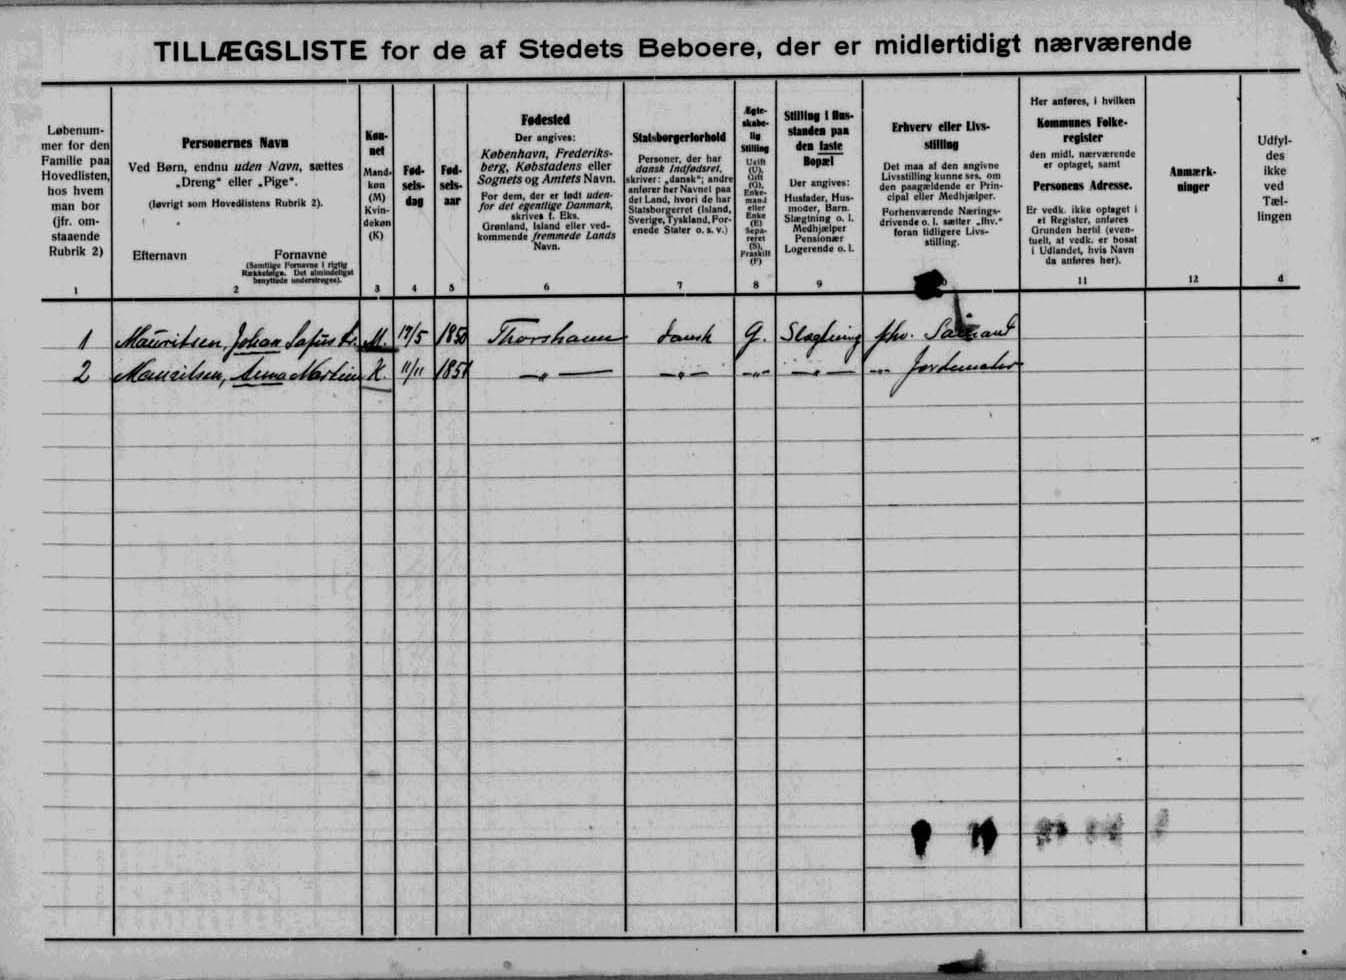 TILLÆGSLISTE for de af Stedets Beboere, der er midlertidigt nærværende
Løbenum-
mer for den
Familie paa
Hovedlisten,
hos hvem
man bor
(jfr. om-
staaende
Rubrik 2)
1
Personernes Navn
Ved Børn, endnu uden Navn, sættes
„Dreng“ eller „Pige“.
(Iøvrigt som Hovedlistens Rubrik 2).
Efternavn Fornavne
(Samtlige Fornavne i rigtig
Rækkefølge. Det almindeligst
benyttede understreges).
2
Køn-
net
Mand-
køn
(M)
Kvin-
dekøn
(K)
3
Fød-
sels-
dag
4
Fød-
sels-
aar
5
Fødested
Der angives:
København, Frederiks-
berg, Købstadens eller
Sognets og Amtets Navn.
For dem, der er født uden-
for det egentlige Danmark,
skrives f. Eks.
Grønland, Island eller ved-
kommende fremmede Lands
Navn.
6
Statsborgerforhold
Personer, der har
dansk Indfødsret,
skriver: „dansk“; andre
anfører her Navnet paa
det Land, hvori de har
Statsborgerret (Island,
Sverige, Tyskland, For-
enede Stater o. s. v.)
7
Ægte-
skabe-
lig
Stilling
Ugift
(U),
Gift
(G),
Enke-
mand
eller
Enke
(E)
Sepa-
reret
(S),
Fraskilt
(F)
8
Stilling i Hus-
standen paa
den faste
Bopæl
Der angives:
Husfader, Hus-
moder, Barn,
Slægtning o. l.
Medhjælper
Pensionær
Logerende o. l.
9
Erhverv eller Livs-
stilling
Det maa af den angivne
Livsstilling kunne ses, om
den paagældende er Prin-
cipal eller Medhjælper.
Forhenværende Nærings-
drivende o. l. sætter „fhv.“
foran tidligere Livs-
stilling.
Her anføres, i hvilken
Kommunes Folke-
register
den midl. nærværende
er optaget, samt
Personens Adresse.
Er vedk. ikke optaget i
et Register, anføres
Grunden hertil (even-
tuelt, at vedk. er bosat
i Udlandet, hvis Navn
da anføres her).
11
Anmærk-
ninger
12
Udfyl-
des
ikke
ved
Tæl-
lingen
d
1 Mauritsen, Johan M. 17/5 1850 Thorshavn dansk G. Slægtning fhv.
2 Mauritsen, Anna K. 11/11 1851 —„— —„— —„— —„— —„— Jordemoder